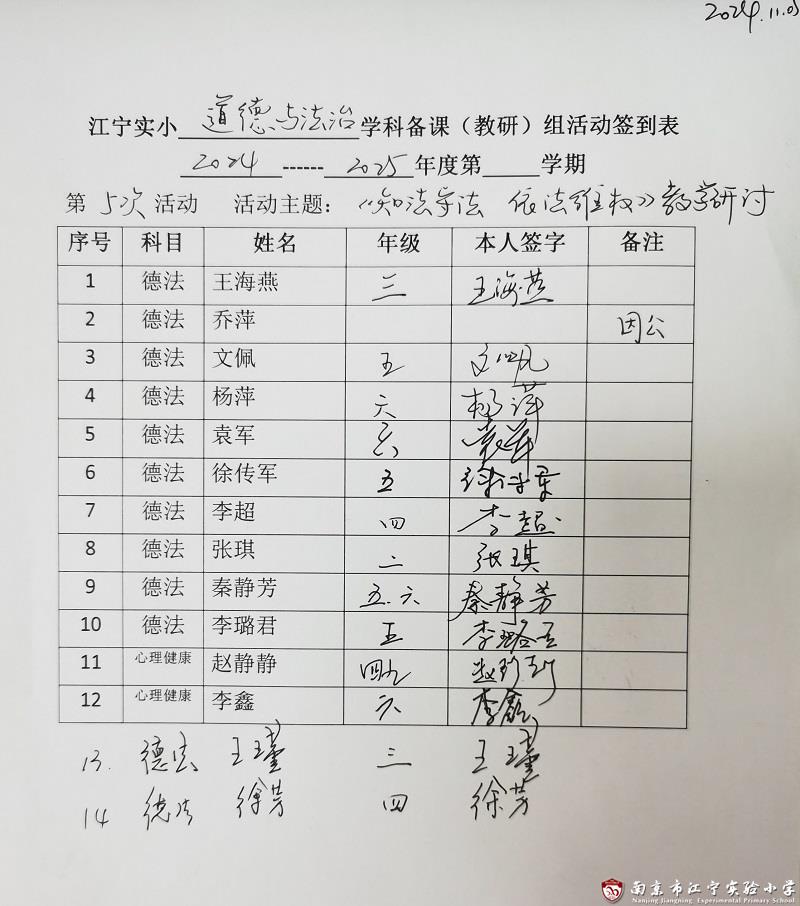 2024.11.05
江宁实小 道德与法治 学科备课（教研）组活动签到表
2024 ------ 2025 年度第 学期
第 5次 活动 活动主题：《知法守法 依法维权》教学研讨
序号 科目 姓名 年级 本人签字 备注
1 德法 王海燕 三 王海燕
2 德法 乔萍 因公
3 德法 文佩 五 文佩
4 德法 杨萍 六 杨萍
5 德法 袁军 六 袁军
6 德法 徐传军 五 徐传军
7 德法 李超 四 李超
8 德法 张琪 二 张琪
9 德法 秦静芳 五.六 秦静芳
10 德法 李璐君 五 李璐君
11 心理健康 赵静静 赵静静
12 心理健康 李鑫 六 李鑫
13. 德法 王瑾 三 王瑾
14 德法 徐芳 四 徐芳
南京市江宁实验小学
Nanjing Jiangning Experimental Primary School